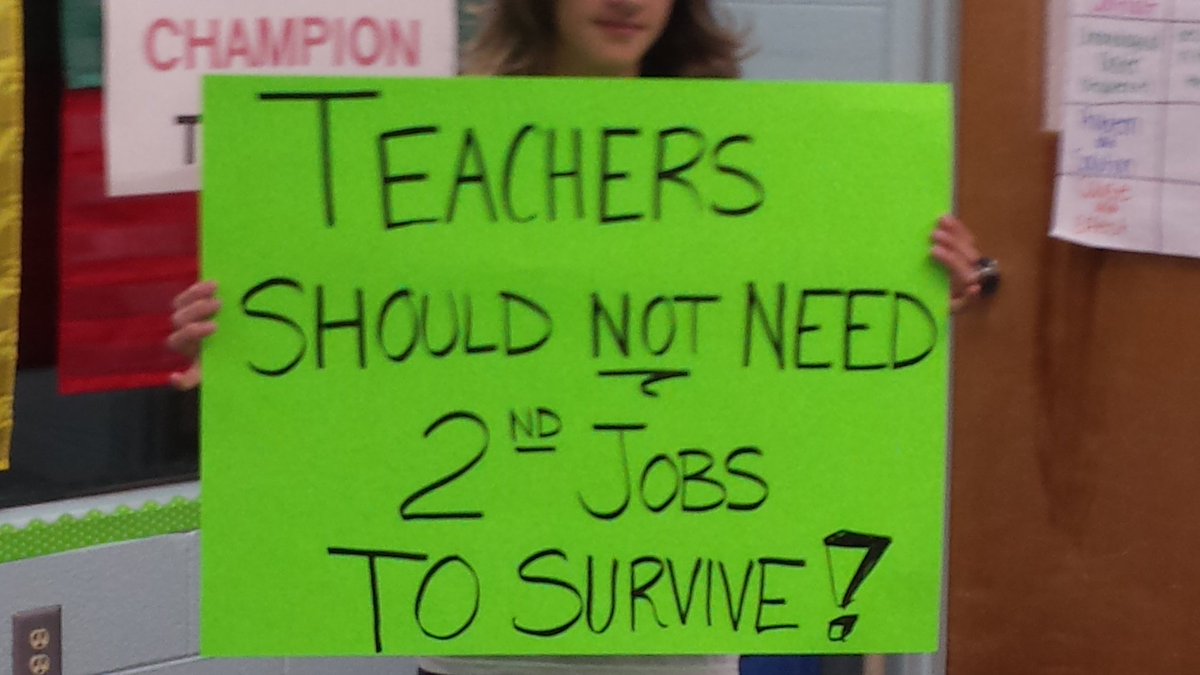 CHAMPION
T
TEACHERS
SHOULD NOT NEED
2ND JOBS
TO SURVIVE!